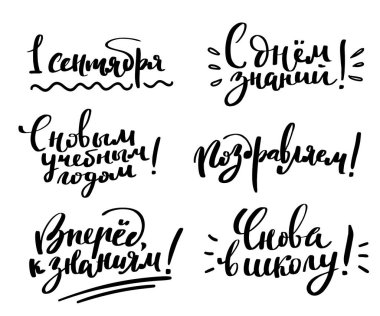 1 сентября
С днём
знаний!
С новым
учебным
годом!
Поздравляем!
Вперёд,
к знаниям!
Снова
в школу!